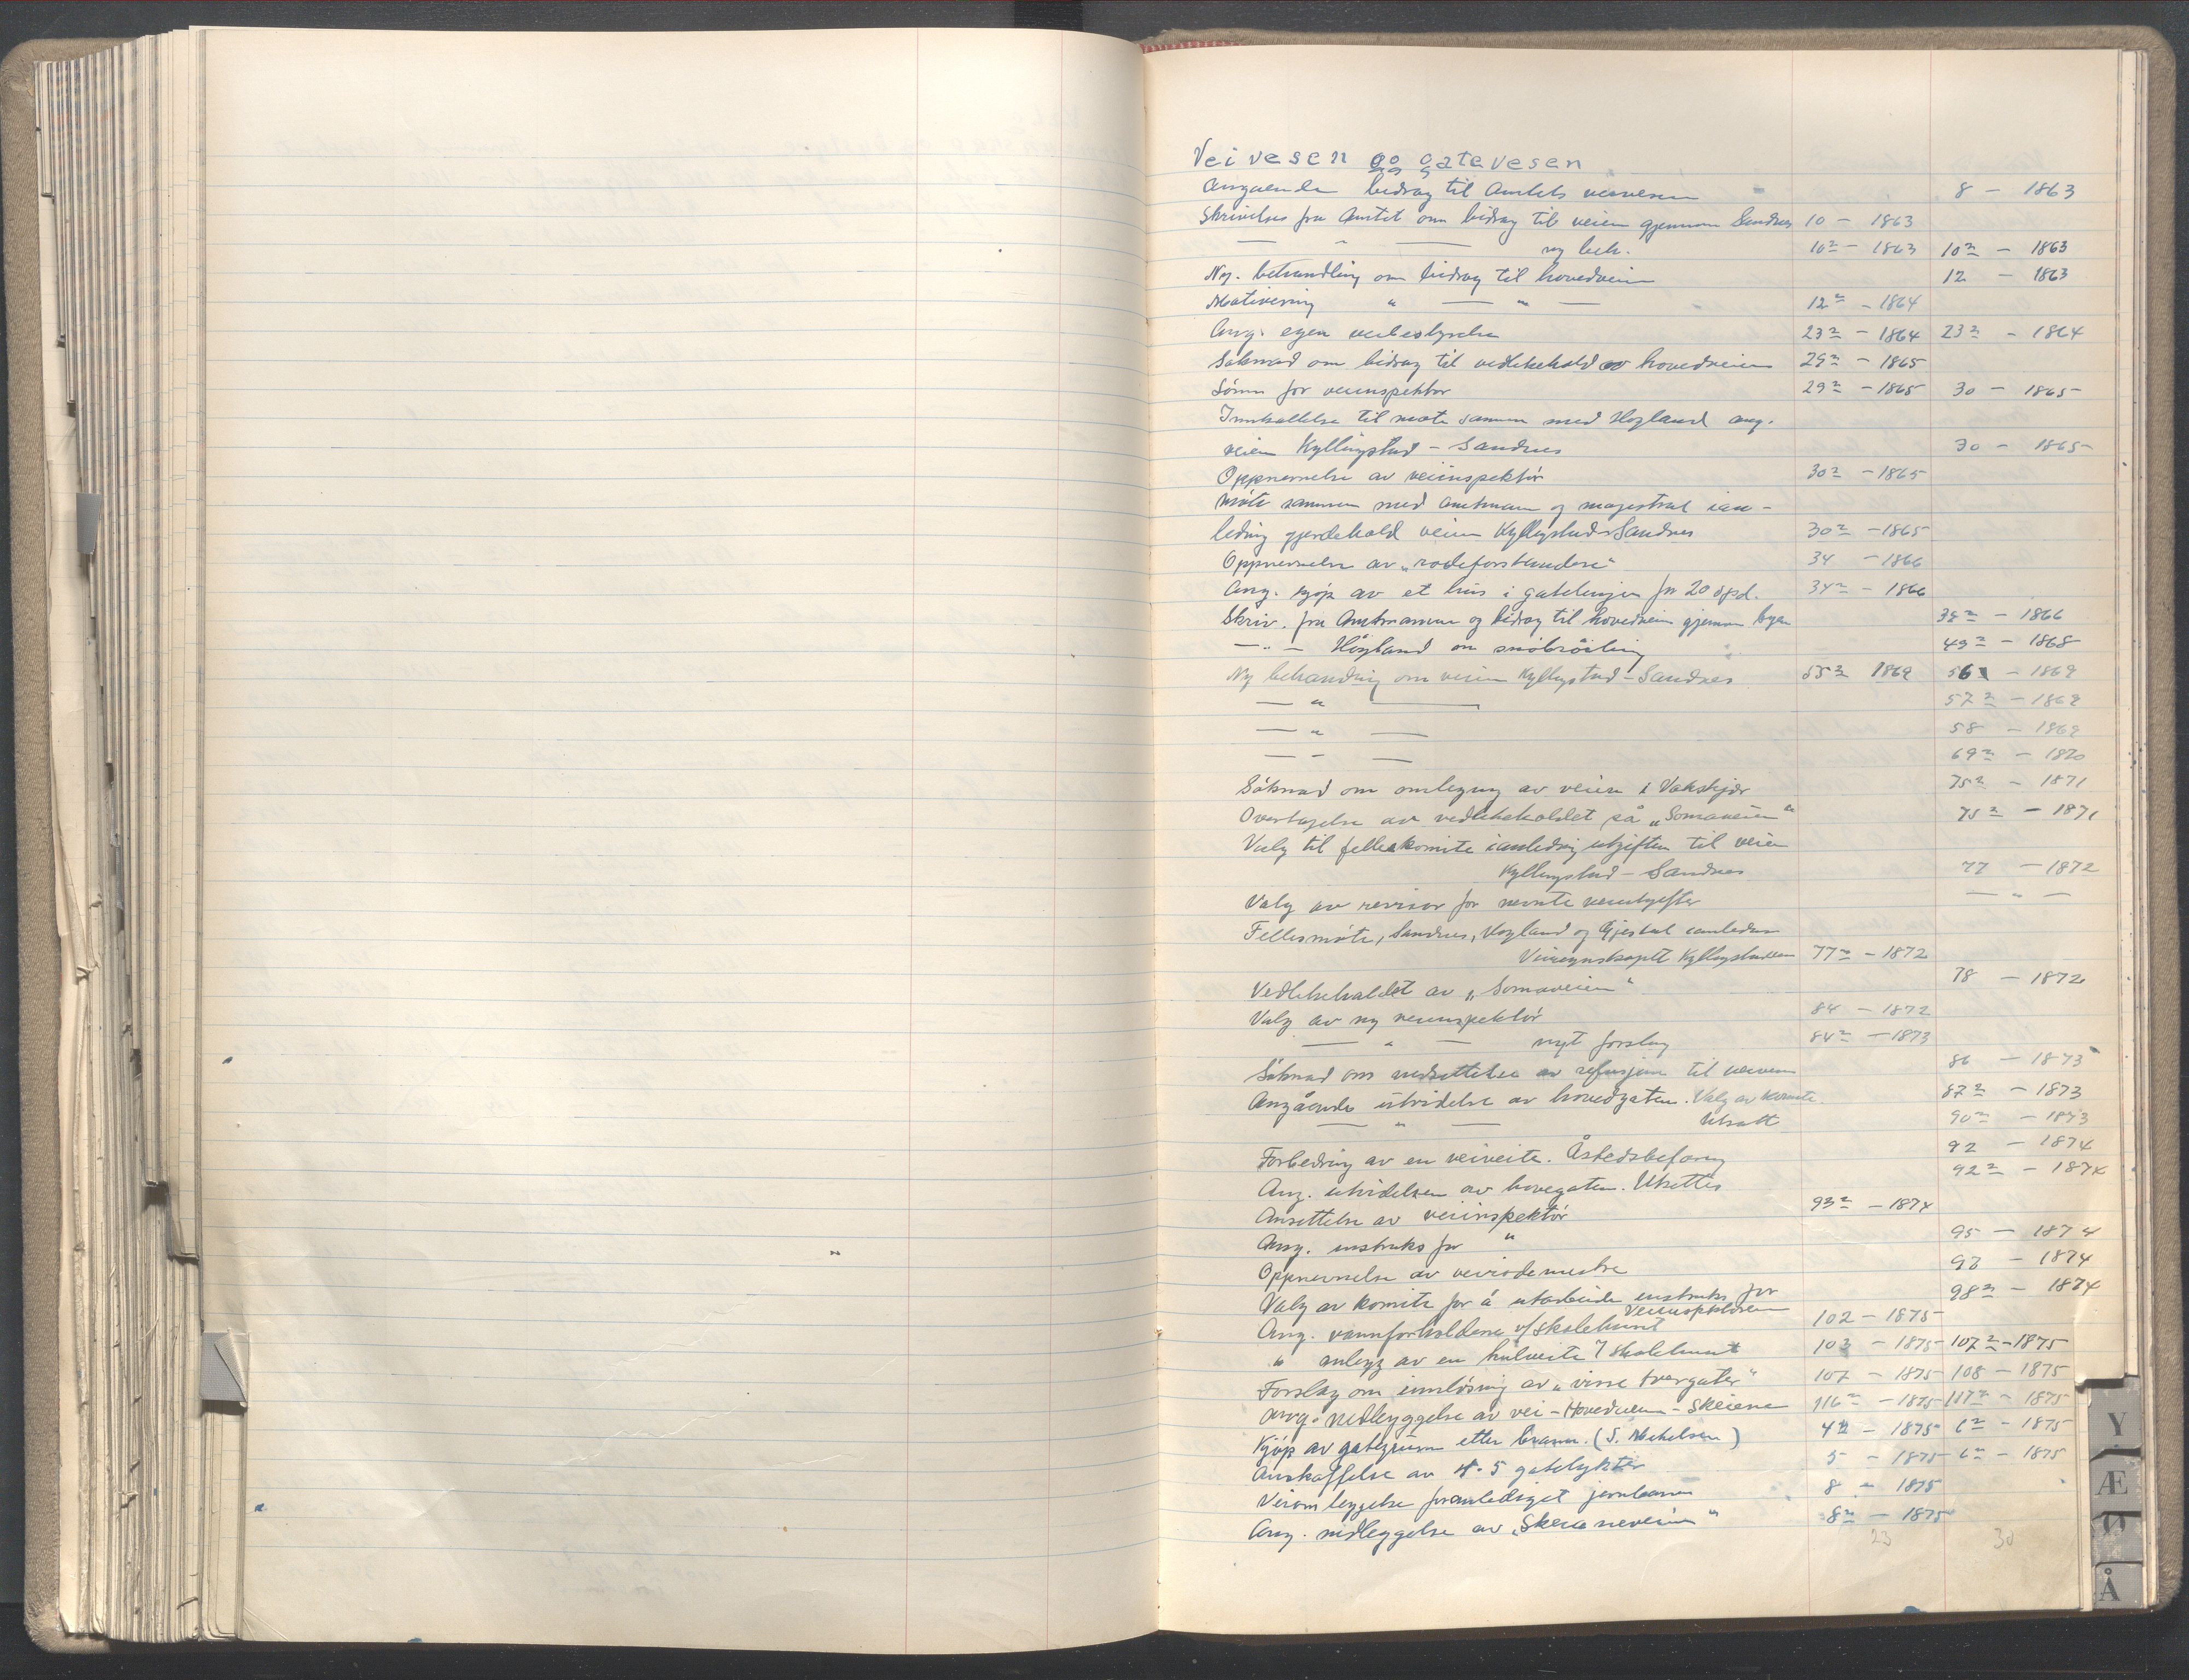 Veivesen og gatevesen
Angaaende bidrag til Amtets veivesen 8 - 1863
Skrivelse fra Amtet om bidrag til veien gjennem Sandnes 10 - 1863
— " — ny beh. 10² - 1863 10² - 1863
Ny. behandling om bidrag til hovedveien 12 - 1863
Motivering " — " — 12² - 1864
Ang. egen veibestyrelse 23² - 1864 23² - 1864
Søknad om bidrag til vedlikehold av hovedveien 29² - 1865
Lønn for veiinspektør 29² - 1865 30 - 1865
Innkallelse til møte sammen med Høyland ang.
veien Kyllingstad - Sandnes 30 - 1865
Oppnevnelse av veiinspektør 30² - 1865
Møte sammen med amtmann og magistrat i an-
ledning gjerdehold veien Kyllingstad - Sandnes 30² - 1865
Oppnevnelse av „rodeforstandere" 34 - 1866
Ang. kjøp av et hus i gatelinjen for 20 spd. 34² - 1866
Skriv. fra Amtmannen og bidrag til hovedveien gjennem byen 38² - 1866
— " — Høyland om snøbrøiting 49² - 1868
Ny behandling om veien Kyllingstad - Sandnes 55² 1869 56 - 1869
— " — 57² - 1869
— " — 58 - 1869
— " — 69² - 1870
Søknad om omlegning av veien i Vakskjær 75² - 1871
Overtagelse av vedlikeholdet på „Somaveien" 75² - 1871
Valg til felleskomite i anledning utgiften til veien
Kyllingstad - Sandnes 77 - 1872
Valg av revisor for nevnte veiutgifter — " —
Fellesmøte, Sandnes, Høyland og Gjestal i anledn.
Veiregnskapet Kyllingstadveien 77² - 1872
Vedlikeholdet av „Somaveien" 78 - 1872
Valg av ny veiinspektør 84 - 1872
— " — nytt forslag 84² - 1873
Søknad om nedsettelse av refusjon til veivesen 86 - 1873
Angående utvidelse av hovedgaten. Valg av komite 87² - 1873
— " — Utsatt 90² - 1873
Forbedring av en veiveite. Åstedsbefaring 92 - 1874
Ang. utvidelsen av hovegaten. Utsettes 92² - 1874
Ansettelse av veiinspektør 93² - 1874
Ang. instruks for " 95 - 1874
Oppnevnelse av veirodemestre 98 - 1874
Valg av komite for å utarbeide instruks for
veiinspektøren 98² - 1874
Ang. vannforholdene v/ skolehuset 102 - 1875
" anlegg av en kulveite / skolehuset 103 - 1875 107² - 1875
Forslag om innløsning av „visse tvergater" 107 - 1875 108 - 1875
Ang. nedleggelse av vei - Hovedveien - Skeiene 116² - 1875 117² - 1875
Kjøp av gategrunn etter brann. (S. Mikelsen) 4² - 1875 6² - 1875
Anskaffelse av 4-5 gatelykter 5 - 1875 6² - 1875
Veiomleggelse foranlediget jernbanen 8 - 1875
Ang. nedleggelse av „Skeieneveien" 8² - 1875
23 30
Y
Æ
Ø
Å